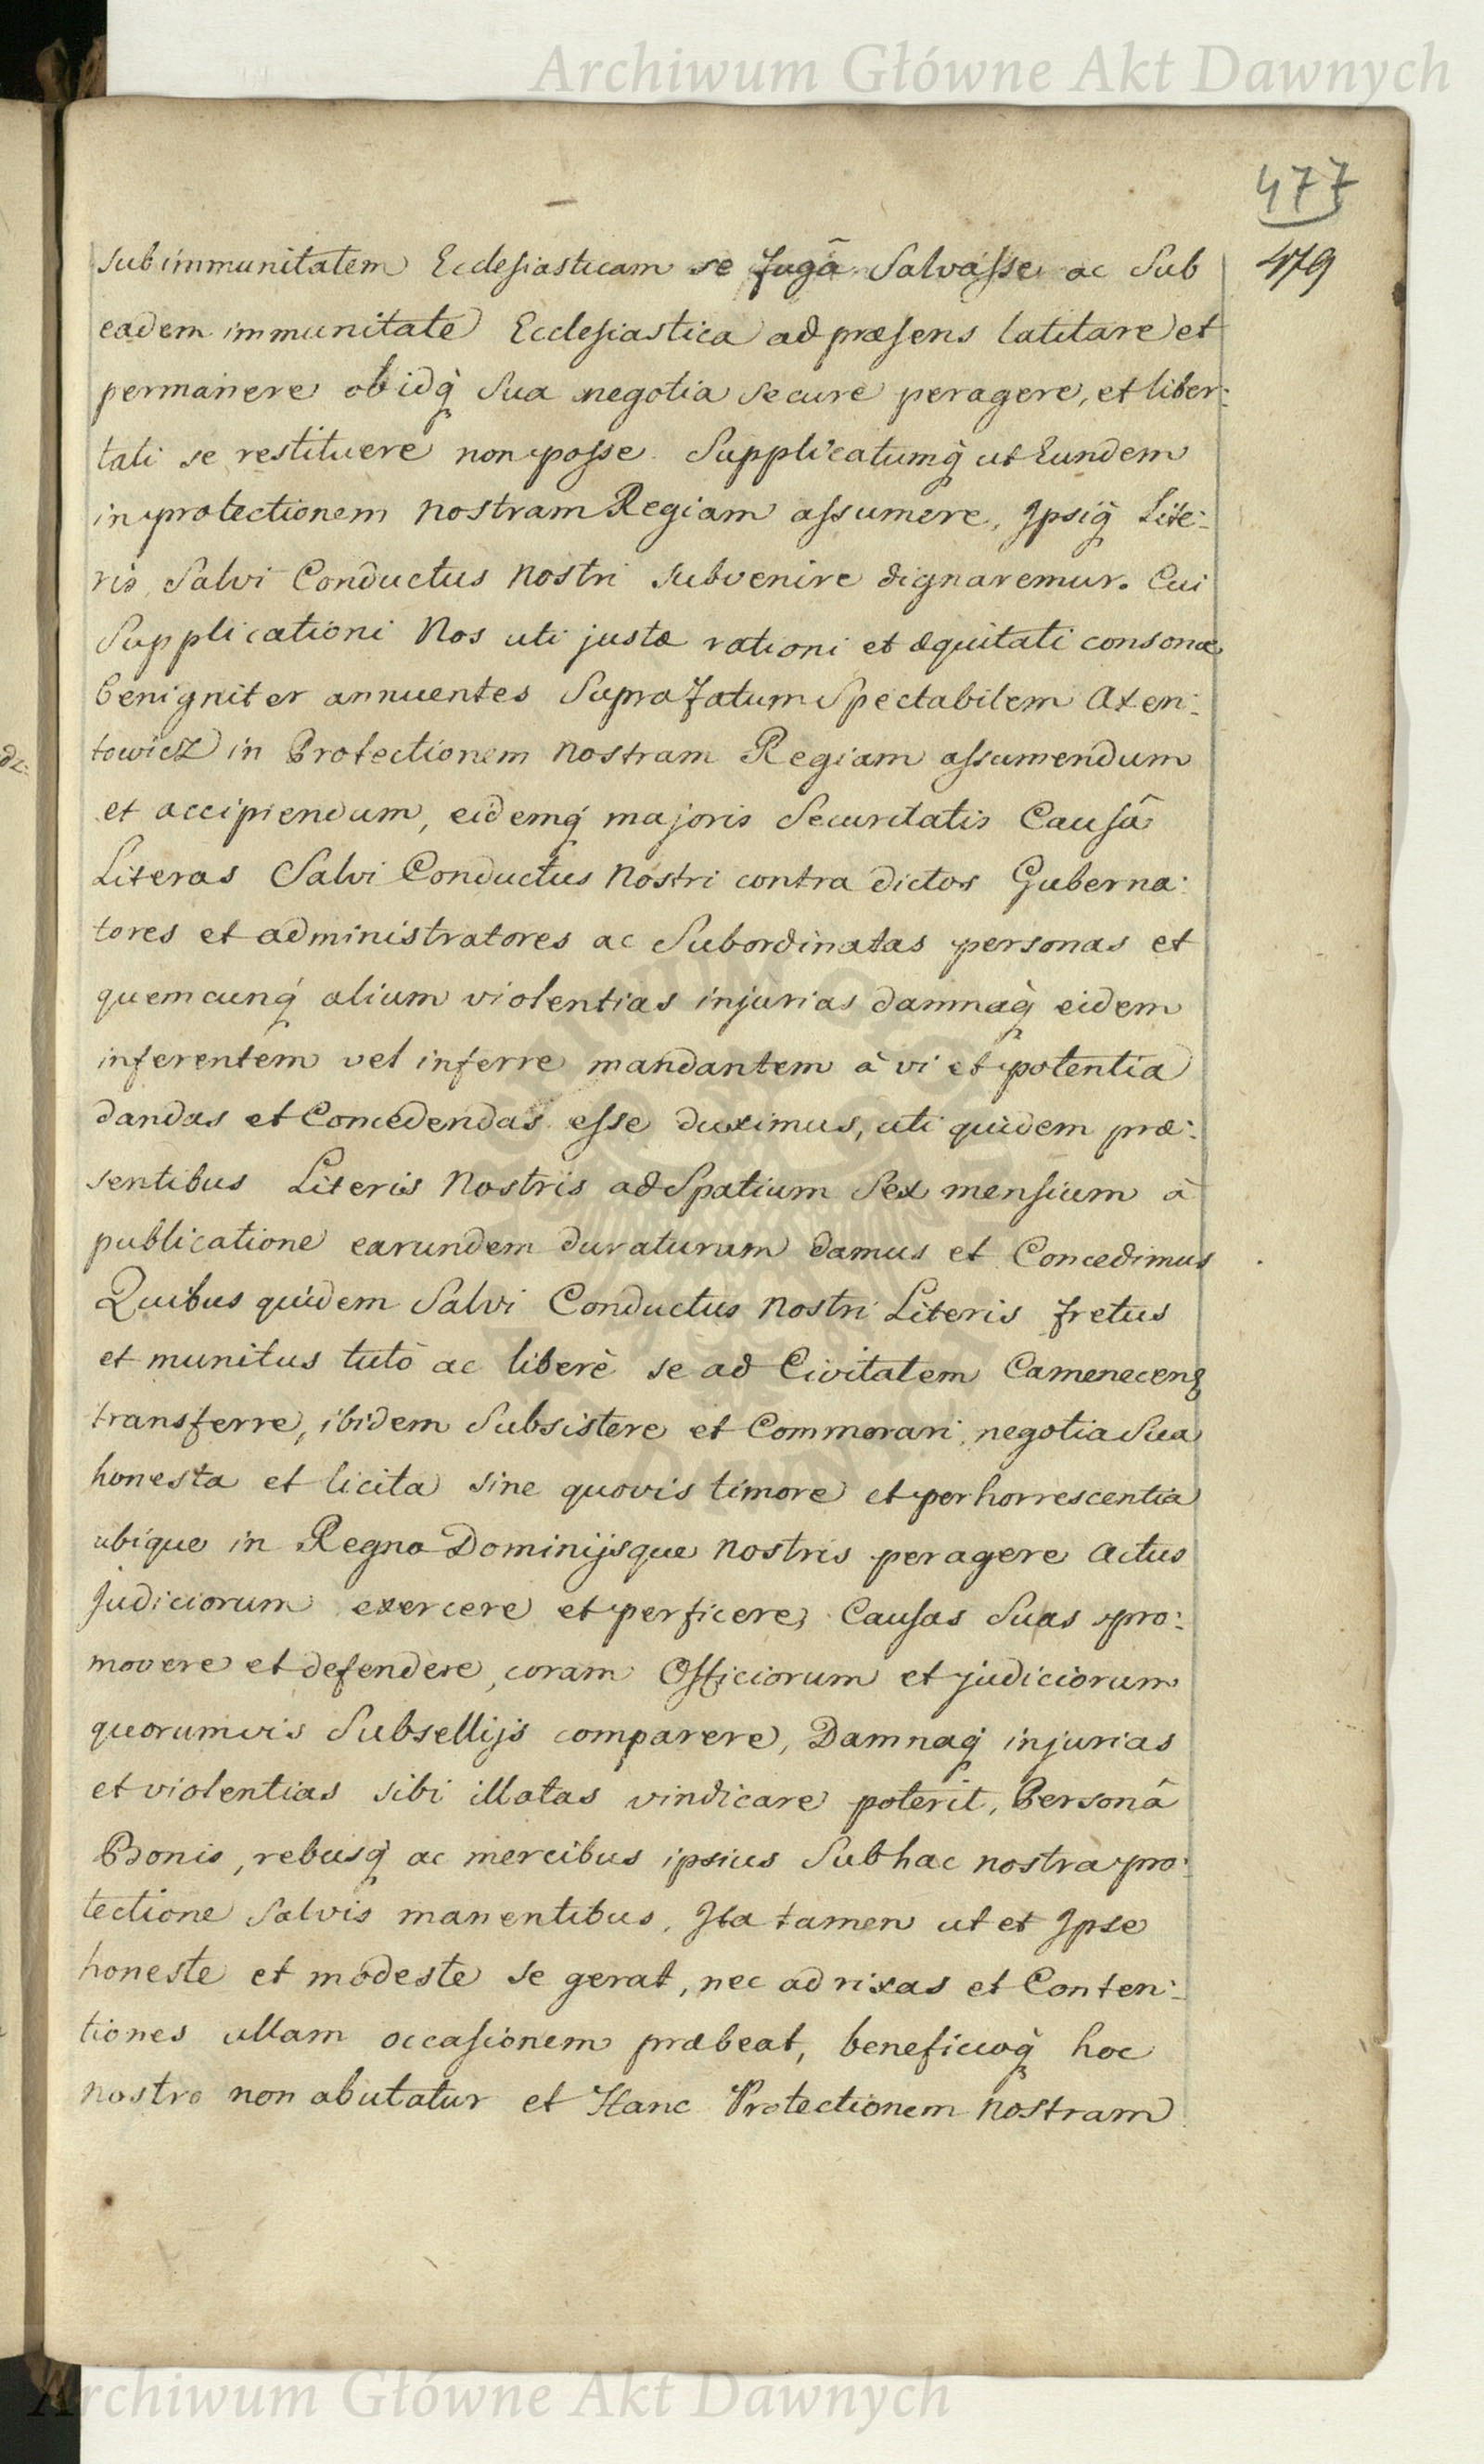 Archiwum Główne Akt Dawnych
477
479
sub immunitatem Ecclesiasticam se fugâ Salvasse ac Sub
eadem immunitate Ecclesiastica ad præsens latitare et
permanere ob idq̀ Sua negotia secure peragere, et liber:
tati se restituere non posse. Supplicatumq̀ ut Eundem
in protectionem nostram Regiam assumere, Ipsiq̀ Lite:
ris Salvi Conductus nostri subvenire dignaremur. Cui
Supplicationi Nos uti justæ rationi et æquitati consonæ
benigniter annuentes Suprafatum Spectabilem Axen:
towicz in Protectionem nostram Regiam assumendum
et accipiendum, eidemq́ majoris Securitatis Causâ
Literas Salvi Conductus nostri contra dictos Guberna:
tores et administratores ac Subordinatas personas et
quemcunq́ alium violentias injurias damnaq̀ eidem
inferentem vel inferre mandantem à vi et potentia
dandas et Concedendas esse duximus, uti quidem præ:
sentibus Literis Nostris ad Spatium Sex mensium à
publicatione earundem duraturum damus et Concedimus
Quibus quidem Salvi Conductus nostri Literis fretus
et munitus tutò ac liberè se ad Civitatem Camenecens
transferre, ibidem Subsistere et Commorari, negotia Sua
honesta et licita sine quovis timore et perhorrescentia
ubique in Regno Dominijsque nostris peragere actus
judiciorum exercere et perficere, Causas Suas pro:
movere et defendere, coram Officiorum et judiciorum
quorumvis Subsellijs comparere, Damnaq́ injurias
et violentias sibi illatas vindicare poterit, Personâ
Bonis, rebusq́ ac mercibus ipsius Sub hac nostra pro:
tectione salvis manentibus, Ita tamen ut et Ipse
honeste et modeste se gerat, nec ad rixas et Conten:
tiones ullam occasionem præbeat, beneficioq̀ hoc
nostro non abutatur et Hanc Protectionem nostram
Archiwum Główne Akt Dawnych